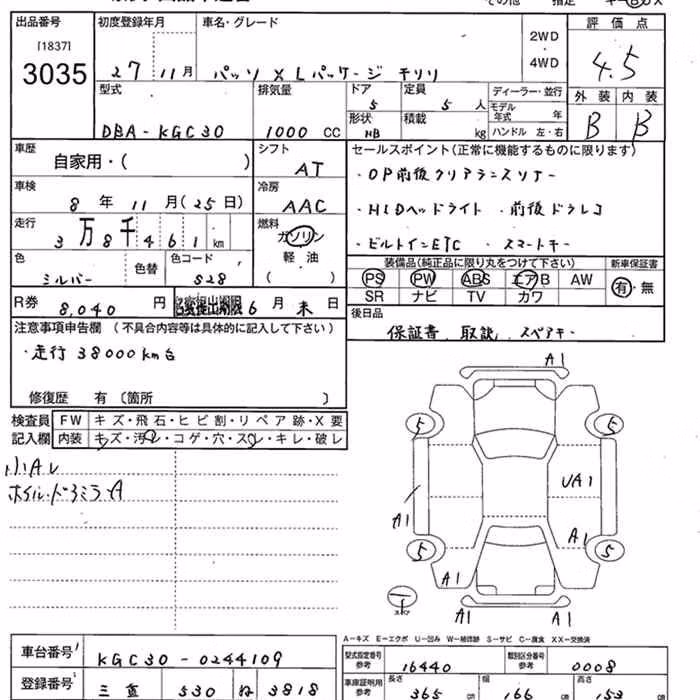 出品番号 [1837] 3035
初度登録年月 27年 11月
車名・グレード パッソ X Lパッケージ モリリ
2WD
4WD
評価点 4.5
型式 DBA-KGC30
排気量 1000 CC
ドア 5
定員 5人
形状 HB
積載 kg
ディーラー・並行
モデル年式 年
ハンドル 左・右
外装 B
内装 B
車歴 自家用・( )
シフト AT
セールスポイント(正常に機能するものに限ります)
・OP前後クリアランスソナー
・HIDヘッドライト ・前後ドラレコ
・ビルトインETC ・スマートキー
車検 8年 11月(25日)
冷房 AAC
走行 3万8千461km
燃料 ガソリン
軽油
( )
色 シルバー
色替
色コード S28
装備品(純正品に限り丸をつけて下さい)
PS PW ABS エアB AW
SR ナビ TV カワ
新車保証書 有・無
R券 8,040円
名変提出期限 6月末日
後日品 保証書、取説、スペアキー
注意事項申告欄(不具合内容等は具体的に記入して下さい)
・走行 38000km台
修復歴 有〔箇所 〕
検査員記入欄
FW キズ・飛石・ヒビ割・リペア跡・X要
内装 キズ・汚レ・コゲ・穴・スレ・キレ・破レ
小Aレ
ホイル・ドアミラーA
A1
5 5
UA1
A1
A1
5 5
A1
A1 A1
A-キズ E-エクボ U-凹み W-補修跡 S-サビ C-腐食 XX-交換済
車台番号 KGC30-0244109
登録番号 三重 530 ね 3818
型式指定番号 参考 16440
類別区分番号 参考 0008
車庫証明用 参考 長さ 365 cm 幅 166 cm 高さ 153 cm